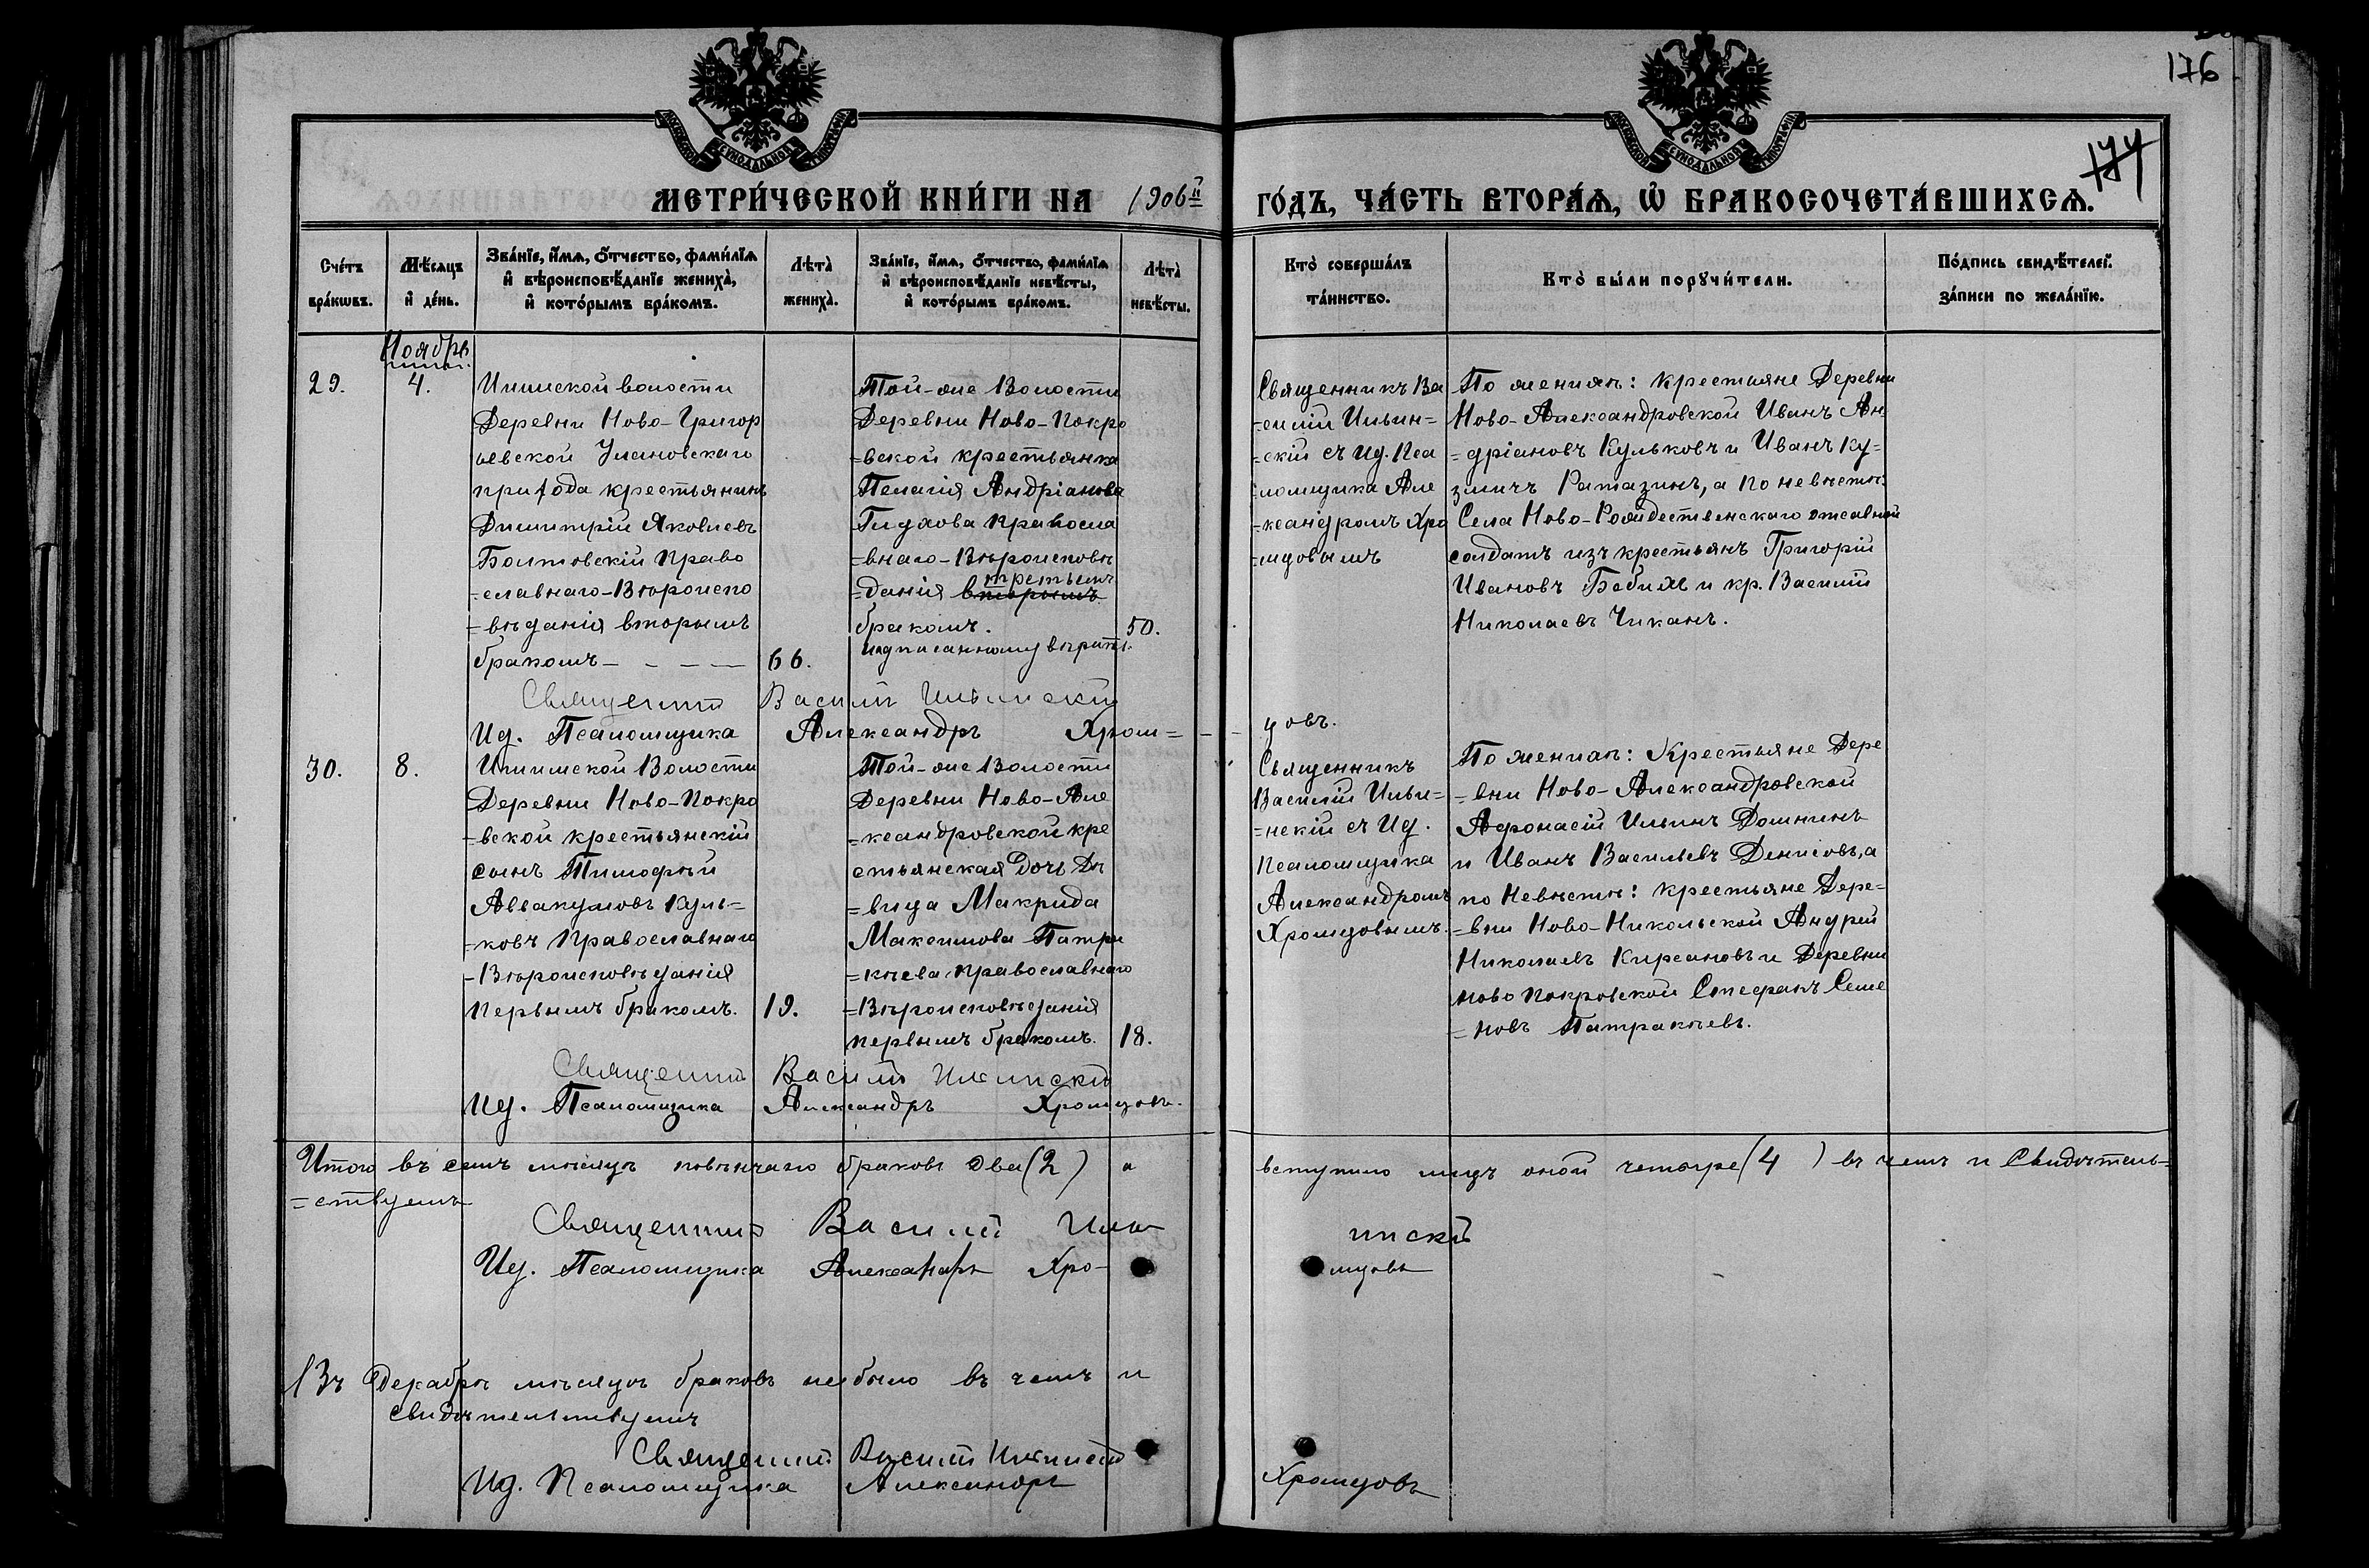 176
174
МОСКОВСКОЙ СѴНОДАЛЬНОЙ ТИПОГРАФІИ
МОСКОВСКОЙ СѴНОДАЛЬНОЙ ТИПОГРАФІИ
МЕТРИ́ЧЕСКОЙ КНИ́ГИ НА 1906й ГО́ДЪ, ЧА́СТЬ ВТОРА́Ѧ, Ѡ҆ БРАКОСОЧЕТА́ВШИХСѦ.
Сче́тъ
бра́кωвъ.
Мѣ́сяцъ
и҆ де́нь.
Зва́нїе, и҆́мя, о҆́тчество, фами́лїя
и҆ вѣроисповѣ́данїе жениха̀,
и҆ кото́рымъ бра́комъ.
Лѣта̀
жениха̀.
Зва́нїе, и҆́мя, о҆́тчество, фами́лїя
и҆ вѣроисповѣ́данїе невѣ́сты,
и҆ кото́рымъ бра́комъ.
Лѣта̀
невѣ́сты.
Кто̀ соверша́лъ
та́инство.
Кто̀ бы́ли порꙋчи́тели.
По́дпись свидѣ́телей
за́писи по жела́нїю.
Ноябрь
29.
4.
Ишимской волости
Деревни Ново-Григор
ьевской Улановскаго
прихода крестьянинъ
Димитрій Яковлевъ
Болтовскій Право
=славнаго-Вѣроиспо
=вѣданія вторымъ
бракомъ - - - -
66.
Той-же Волости
Деревни Ново-Покро
=вской крестьянка
Пелагія Андріанова
Гидхова Правосла
=внаго-Вѣроисповѣ
третьимъ
=данія вторымъ
бракомъ.
50.
надписанному вѣрить.
Священникъ Ва
=силій Ильин=
=скій съ Ид. Пса
=ломщика Але
=ксандромъ Хро
=мцовымъ
По женихѣ: крестьяне Деревни
Ново-Александровской Иванъ Ан
=дріановъ Кульковъ и Иванъ Ку=
змичъ Рамазинъ, а по невѣстѣ:
Села Ново-Рождественскаго отставной
солдатъ изъ крестьянъ Григорій
Ивановъ Бабихъ и кр. Василій
Николаевъ Чиканъ.
Священникъ Василій Ильинскій
Ид. Псаломщика Александръ Хром= - - цовъ.
30.
8.
Ишимской Волости
Деревни Ново-Покро
=вской крестьянскій
сынъ Тимофѣй
Аввакумовъ Куль=
=ковъ Православнаго
-Вѣроисповѣданія
первымъ бракомъ.
19.
Той-же Волости
Деревни Ново-Але
=ксандровской кре
стьянская Дочь Дѣ
=вица Макрида
Максимова Патри
=кѣева Православнаго
=Вѣроисповѣданія
первымъ бракомъ.
18.
Священникъ
Василій Ильи=
=нскій съ Ид.
Псаломщика
Александромъ
Хромцовымъ.
По женихѣ: Крестьяне Дере
=вни Ново-Александровской
Афонасій Ильинъ Домнинъ
и Иванъ Васильевъ Денисовъ, а
по Невѣстѣ: крестьяне Дере=
=вни Ново-Никольской Андрей
Николаевъ Кирсановъ и Деревни
Ново Покровской Стефанъ Семе
=новъ Патракѣевъ.
Священникъ Василій Ильинскій
Ид. Псаломщика Александръ Хромцовъ.
Итого въ семъ мѣсяцѣ повѣнчано браковъ два (2) а вступило лицъ оной четыре (4) въ чемъ и Свидѣтель=
=ствуемъ
Священникъ Василій Ильинскій
Ид. Псаломщика Александръ Хро-мцовъ
Въ Декабрѣ мѣсяцѣ браковъ не было въ чемъ и
свидѣтельствуемъ
Священникъ Василій Ильинскій
Ид. Псаломщика Александръ Хромцовъ